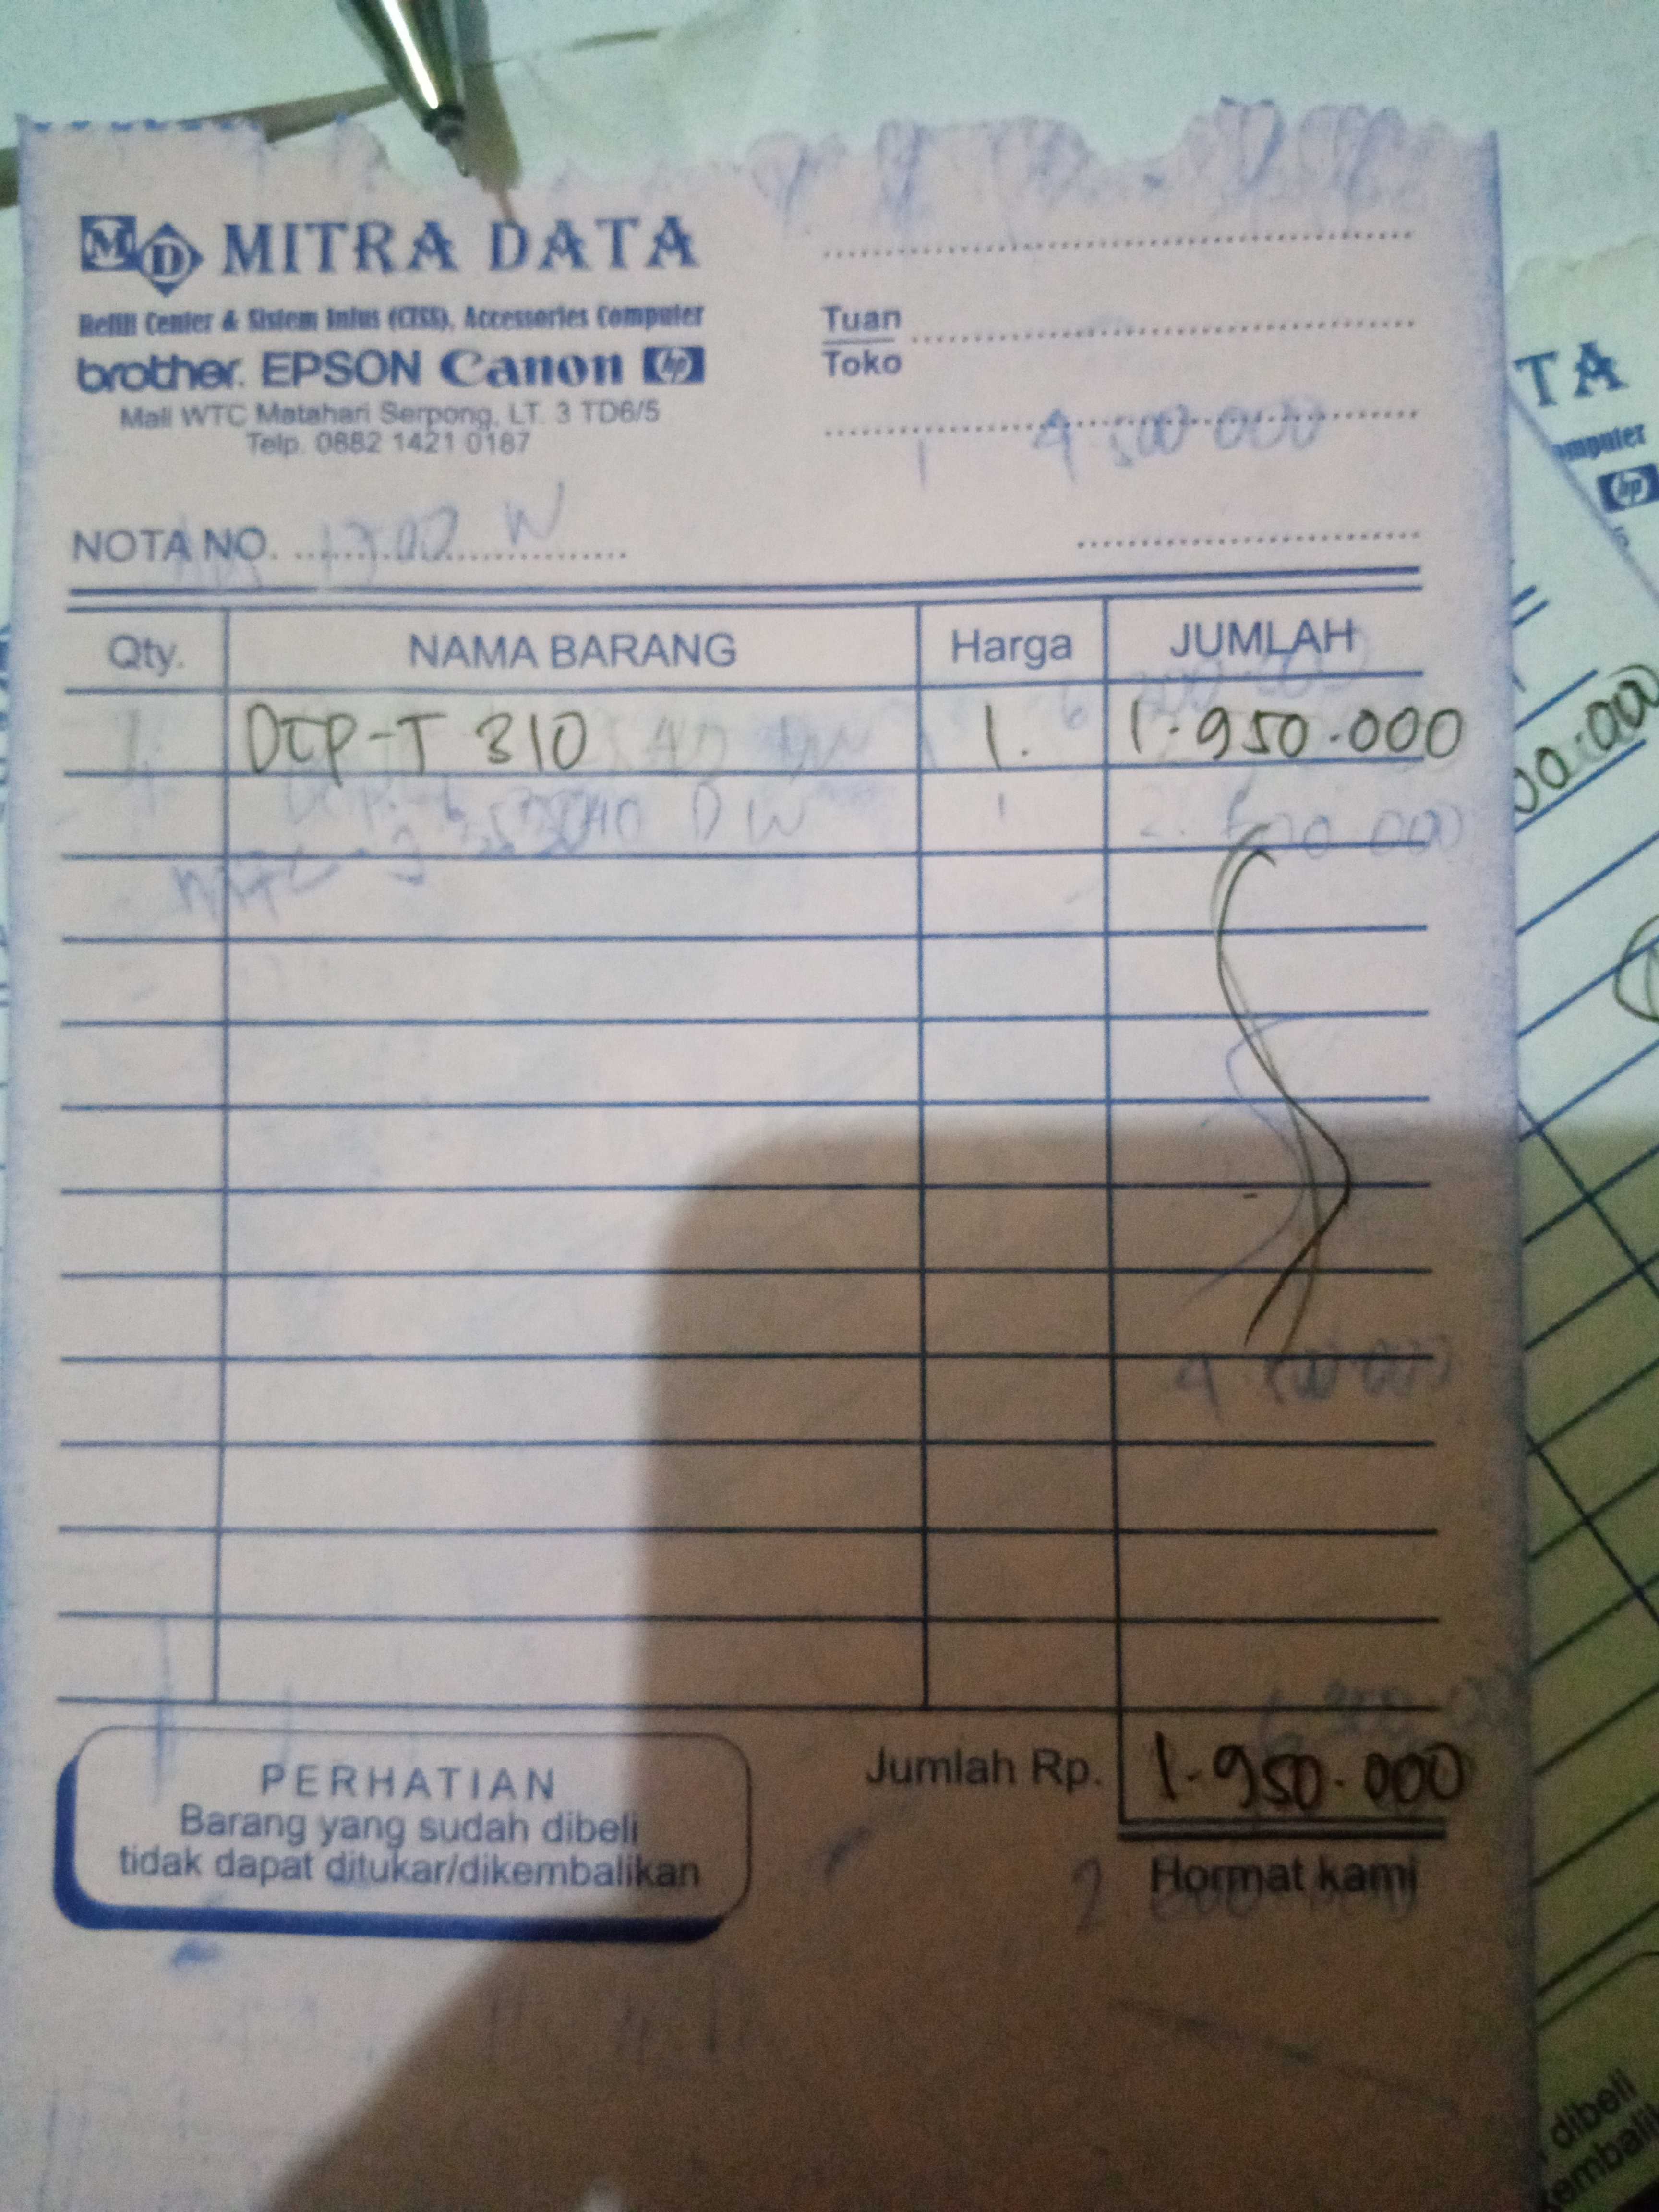 MD MITRA DATA
Refill Center & Sistem Infus (CISS), Accessories Computer
brother. EPSON Canon hp
Mall WTC Matahari Serpong, LT. 3 TD6/5
Telp. 0882 1421 0187
Tuan
Toko
1 4.500.000
NOTA NO. 1500 W
Qty. NAMA BARANG Harga JUMLAH
1. DCP-T 310 1. 1.950.000
PERHATIAN
Barang yang sudah dibeli
tidak dapat ditukar/dikembalikan
Jumlah Rp. 1.950.000
Hormat kami
TA
omputer
hp
00.000
dibeli